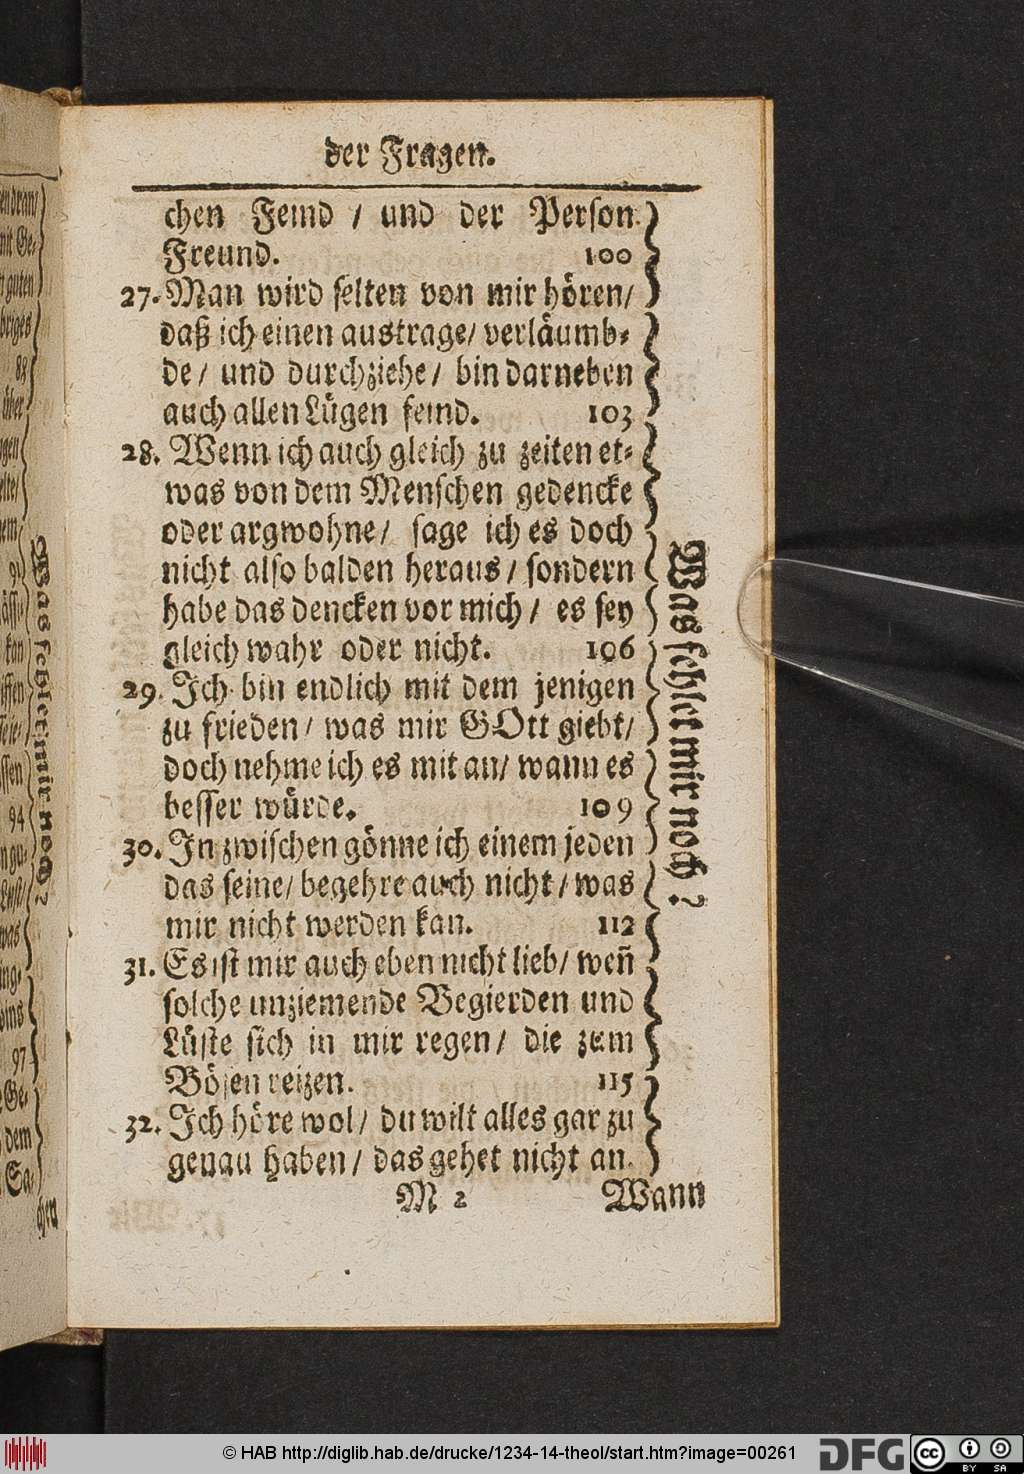 der Fragen.
chen Feind / und der Person
Freund. 100
27. Man wird selten von mir hören/
daß ich einen austrage/ verläumb-
de/ und durchziehe/ bin darneben
auch allen Lügen feind. 103
28. Wenn ich auch gleich zu zeiten et-
was von dem Menschen gedencke
oder argwohne/ sage ich es doch
nicht also balden heraus/ sondern
habe das dencken vor mich/ es sey
gleich wahr oder nicht. 106
29. Ich bin endlich mit dem jenigen
zu frieden/ was mir GOtt giebt/
doch nehme ich es mit an/ wann es
besser würde. 109
30. In zwischen gönne ich einem jeden
das seine/ begehre auch nicht/ was
mir nicht werden kan. 112
31. Es ist mir auch eben nicht lieb/ weñ
solche unziemende Begierden und
Lüste sich in mir regen/ die zum
Bösen reizen. 115
32. Ich höre wol/ du wilt alles gar zu
genau haben/ das gehet nicht an.
M 2 Wann
Was fehlet mir noch?
Was fehlet mir noch?
88
94
97
© HAB http://diglib.hab.de/drucke/1234-14-theol/start.htm?image=00261
DFG
cc BY SA